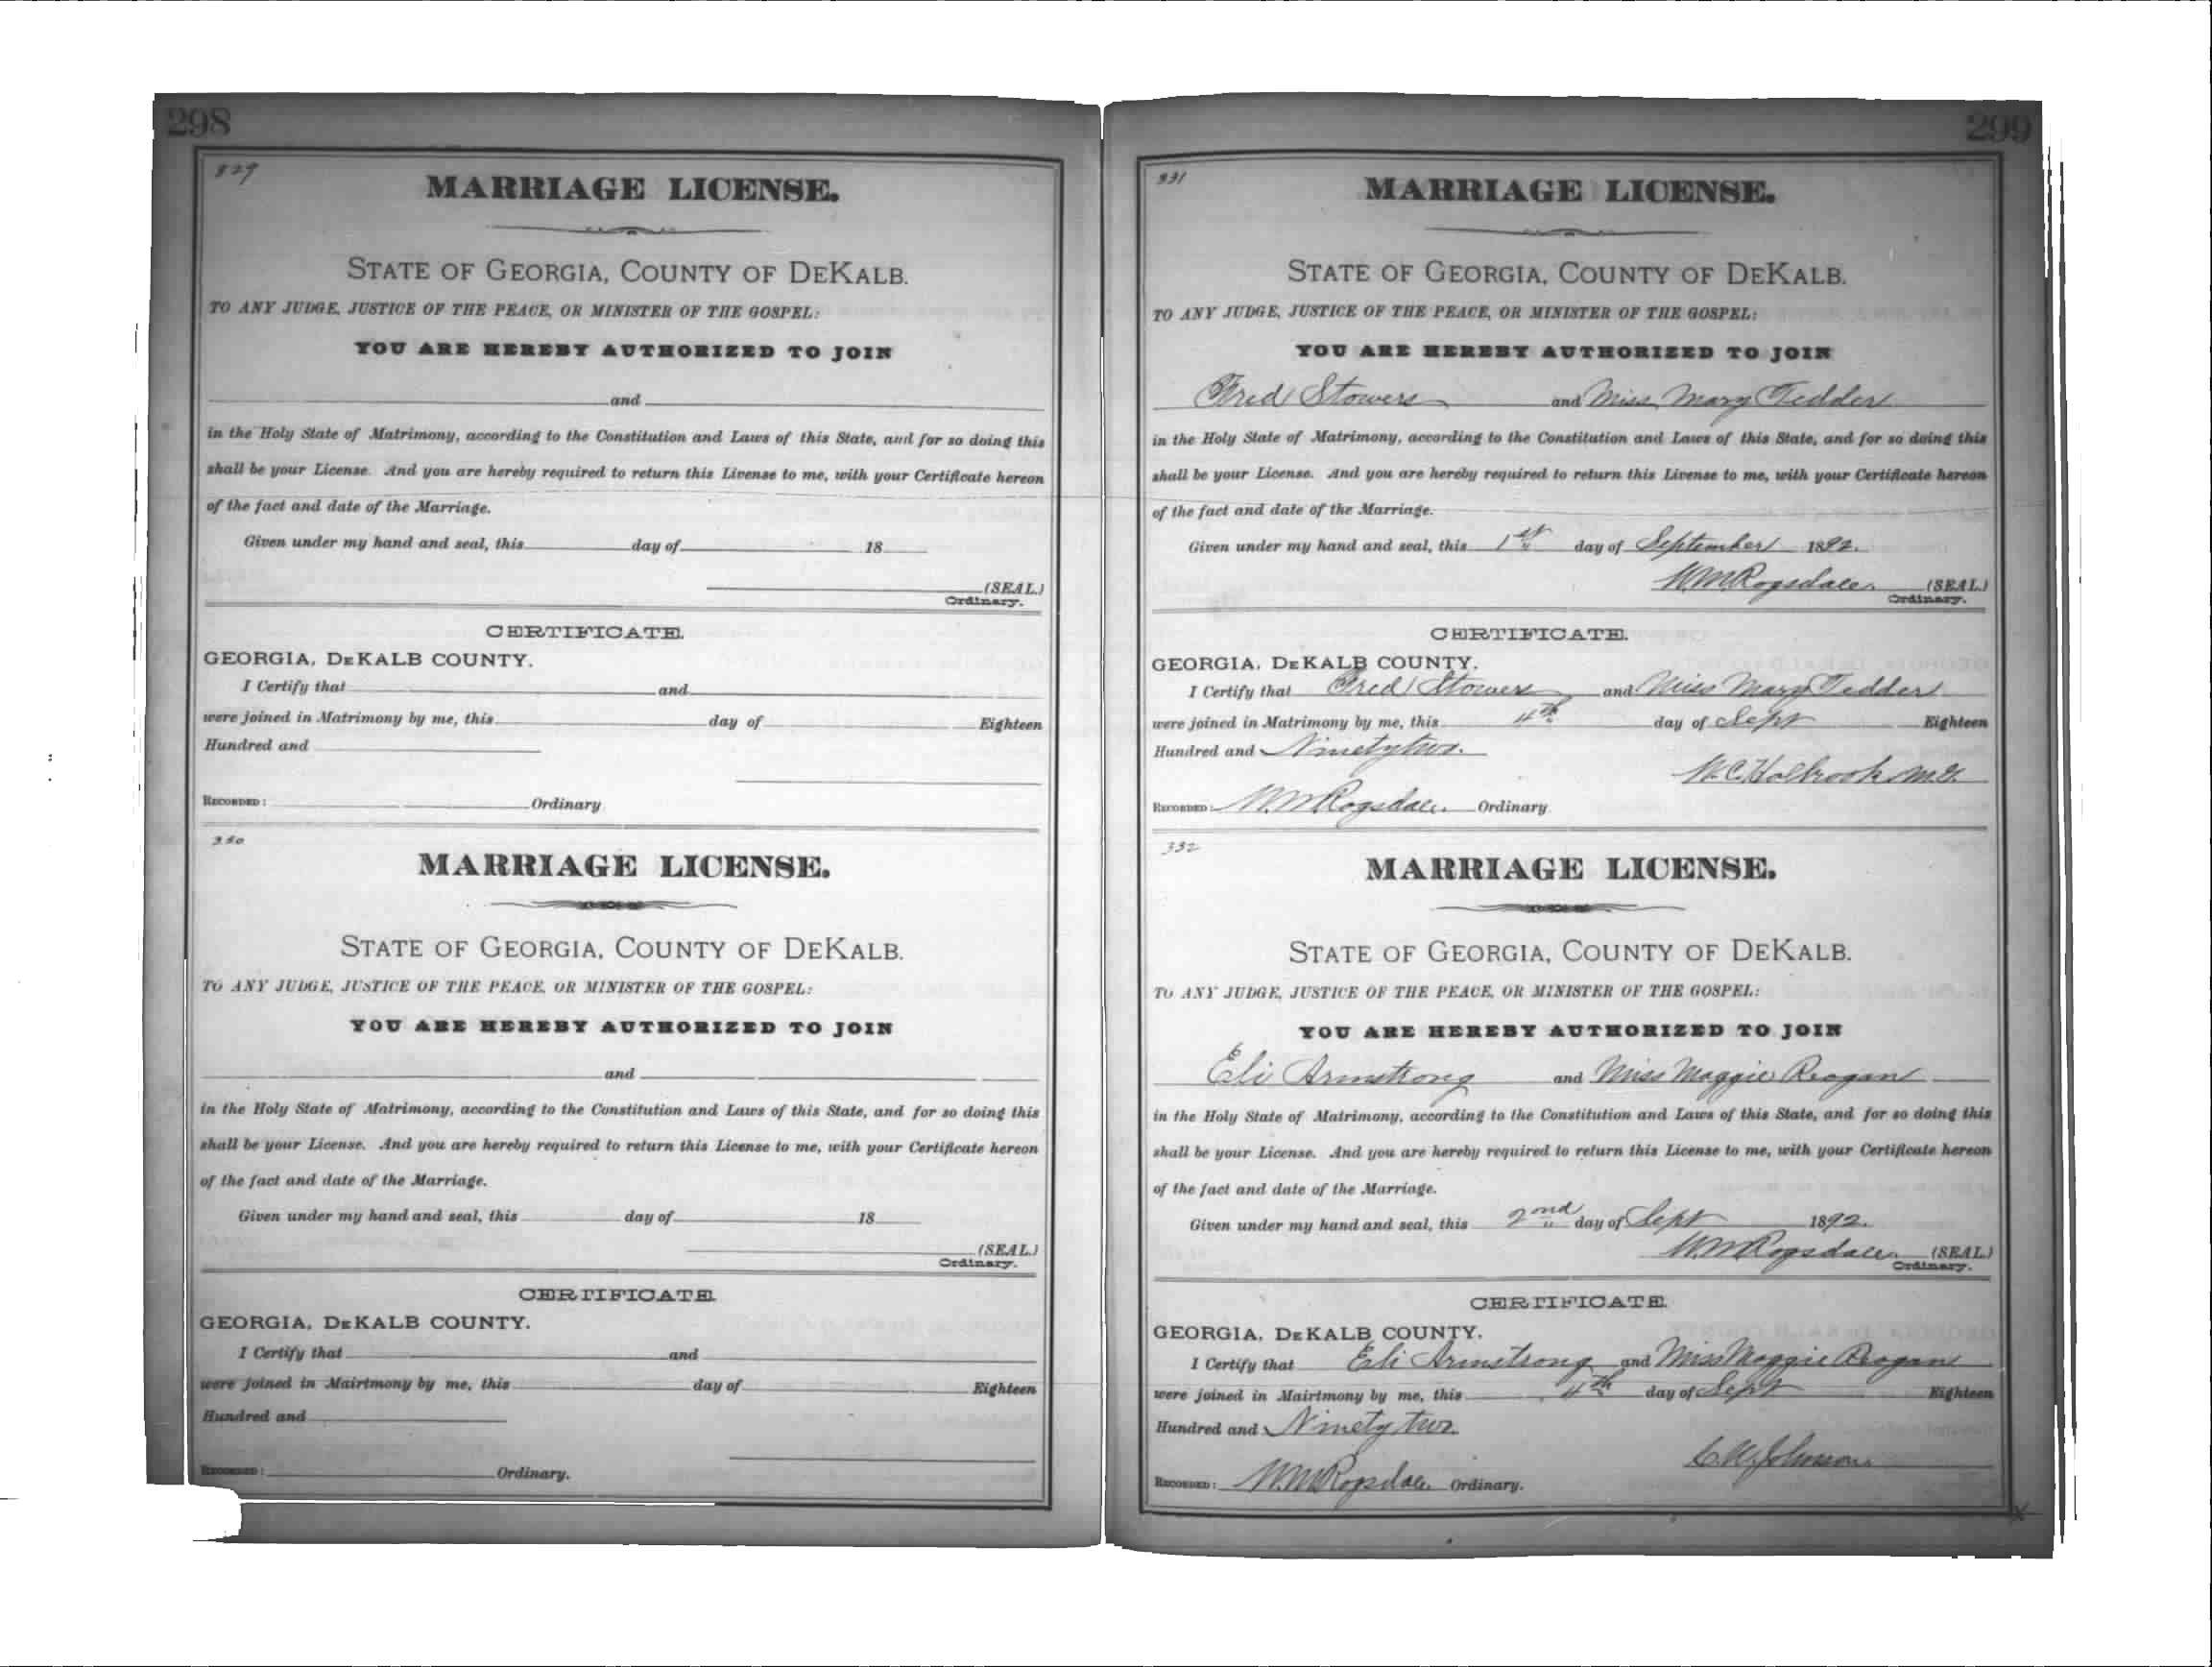 298
329
MARRIAGE LICENSE.
STATE OF GEORGIA, COUNTY OF DEKALB.
TO ANY JUDGE, JUSTICE OF THE PEACE, OR MINISTER OF THE GOSPEL:
YOU ARE HEREBY AUTHORIZED TO JOIN
and
in the Holy State of Matrimony, according to the Constitution and Laws of this State, and for so doing this
shall be your License. And you are hereby required to return this License to me, with your Certificate hereon
of the fact and date of the Marriage.
Given under my hand and seal, this day of 18
(SEAL.)
Ordinary.
CERTIFICATE.
GEORGIA, DEKALB COUNTY.
I Certify that and
were joined in Matrimony by me, this day of Eighteen
Hundred and
RECORDED: Ordinary
330
MARRIAGE LICENSE.
STATE OF GEORGIA, COUNTY OF DEKALB.
TO ANY JUDGE, JUSTICE OF THE PEACE, OR MINISTER OF THE GOSPEL:
YOU ARE HEREBY AUTHORIZED TO JOIN
and
in the Holy State of Matrimony, according to the Constitution and Laws of this State, and for so doing this
shall be your License. And you are hereby required to return this License to me, with your Certificate hereon
of the fact and date of the Marriage.
Given under my hand and seal, this day of 18
(SEAL.)
Ordinary.
CERTIFICATE
GEORGIA, DEKALB COUNTY.
I Certify that and
were joined in Mairtmony by me, this day of Eighteen
Hundred and
RECORDED: Ordinary.
299
331
MARRIAGE LICENSE.
STATE OF GEORGIA, COUNTY OF DEKALB.
TO ANY JUDGE, JUSTICE OF THE PEACE, OR MINISTER OF THE GOSPEL:
YOU ARE HEREBY AUTHORIZED TO JOIN
Fred Stowers and Miss Mary Tedder
in the Holy State of Matrimony, according to the Constitution and Laws of this State, and for so doing this
shall be your License. And you are hereby required to return this License to me, with your Certificate hereon
of the fact and date of the Marriage.
Given under my hand and seal, this 1st day of September 1892.
W.M. Ragsdale (SEAL.)
Ordinary.
CERTIFICATE.
GEORGIA, DEKALB COUNTY.
I Certify that Fred Stowers and Miss Mary Tedder
were joined in Matrimony by me, this 4th day of Sept Eighteen
Hundred and Ninety two.
W.C. Holbrook M.G.
RECORDED: W.M. Ragsdale. Ordinary
332
MARRIAGE LICENSE.
STATE OF GEORGIA, COUNTY OF DEKALB.
TO ANY JUDGE, JUSTICE OF THE PEACE, OR MINISTER OF THE GOSPEL:
YOU ARE HEREBY AUTHORIZED TO JOIN
Eli Armstrong and Miss Maggie Reagan
in the Holy State of Matrimony, according to the Constitution and Laws of this State, and for so doing this
shall be your License. And you are hereby required to return this License to me, with your Certificate hereon
of the fact and date of the Marriage.
Given under my hand and seal, this 2nd day of Sept 1892.
W.M. Ragsdale (SEAL.)
Ordinary.
CERTIFICATE
GEORGIA, DEKALB COUNTY.
I Certify that Eli Armstrong and Miss Maggie Reagan
were joined in Mairtmony by me, this 4th day of Sept Eighteen
Hundred and Ninety two.
Johnson
RECORDED: W.M. Ragsdale. Ordinary.